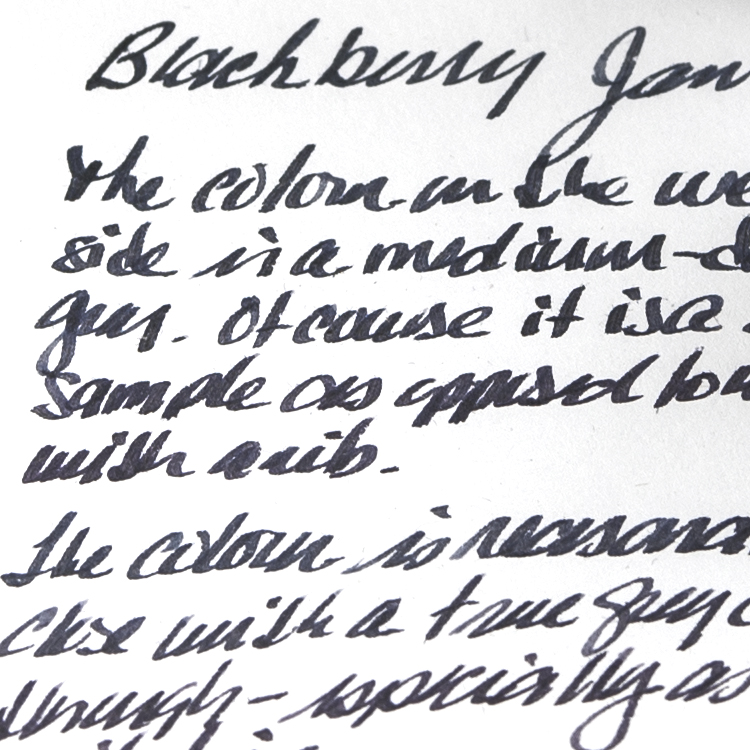 Blackberry Jam
The colour on the we
side is a medium-d
grey. Of couse it is a
sample as opposed to
with a nib.
The colour is reasona
close with a true grey
through - especially as